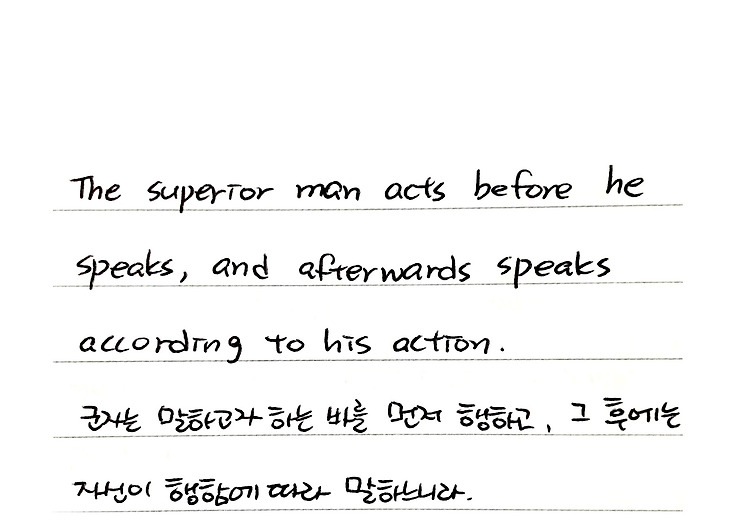 The superior man acts before he
speaks, and afterwards speaks
according to his action.
군자는 말하고자 하는 바를 먼저 행하고, 그 후에는
자신이 행함에 따라 말하느니라.